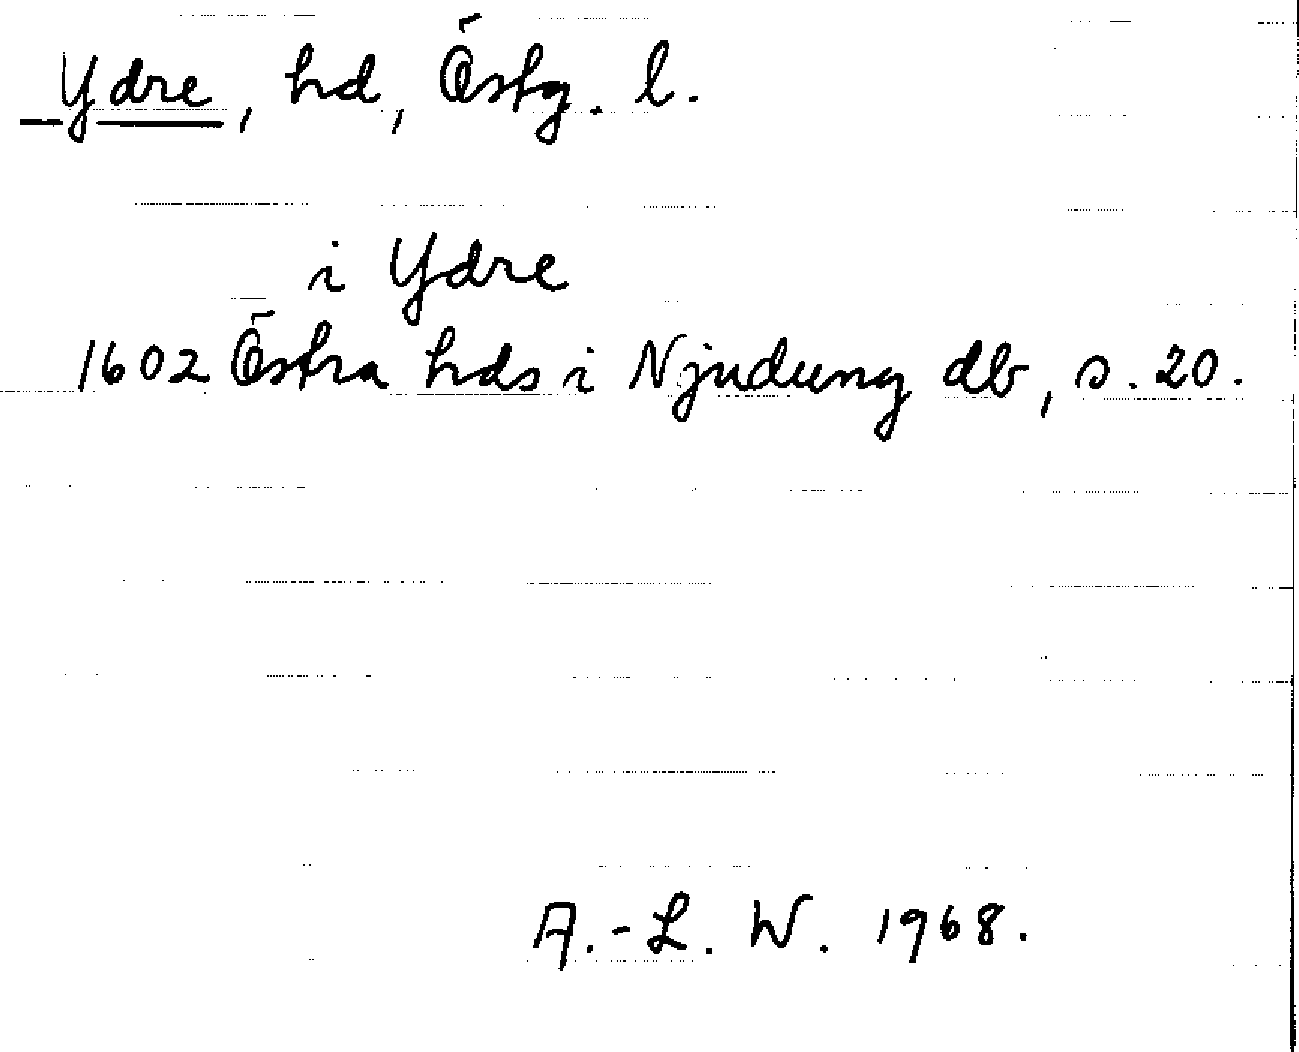 Ydre, hd, Östg. l.
i Ydre
1602 Östra hds i Njudung db, s. 20.
A.-L. W. 1968.